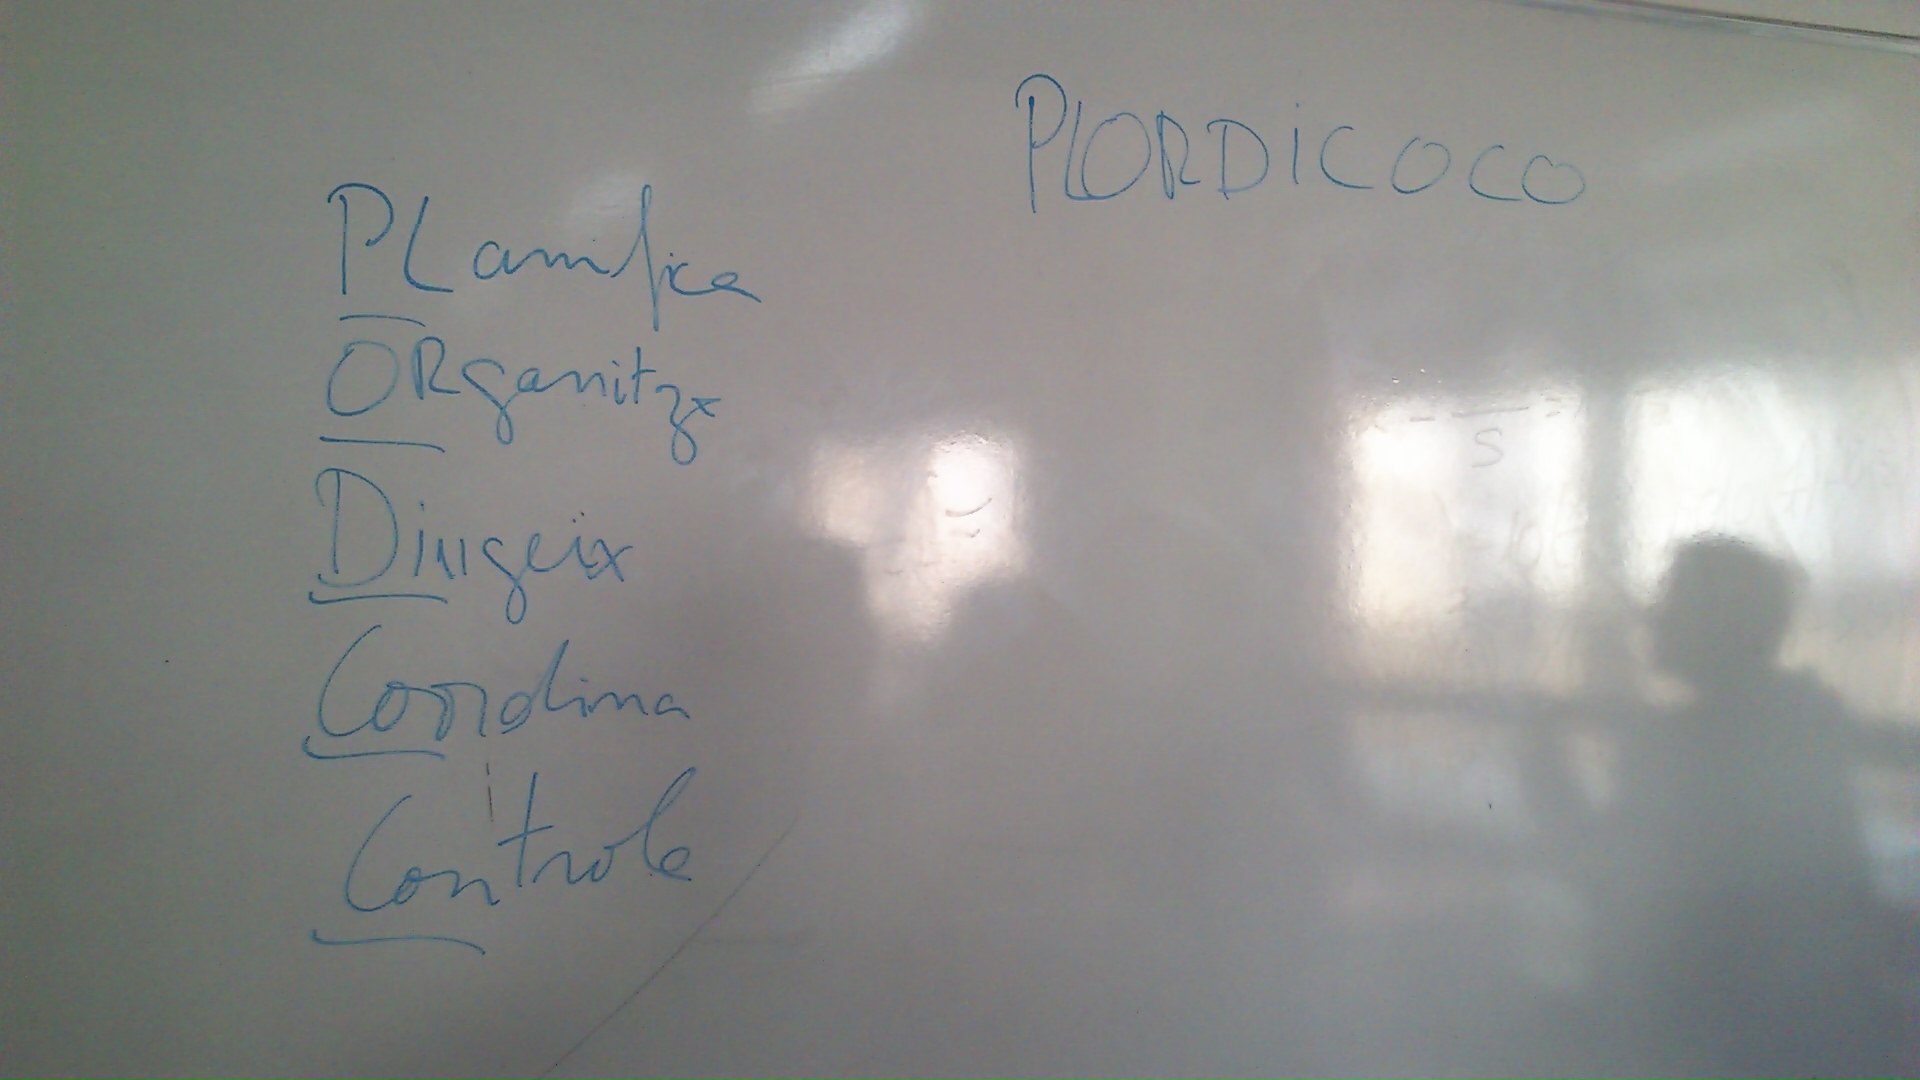 PLORDICOCO
PLanifica
ORganitza
Dirigeix
Coordina
Controla
S